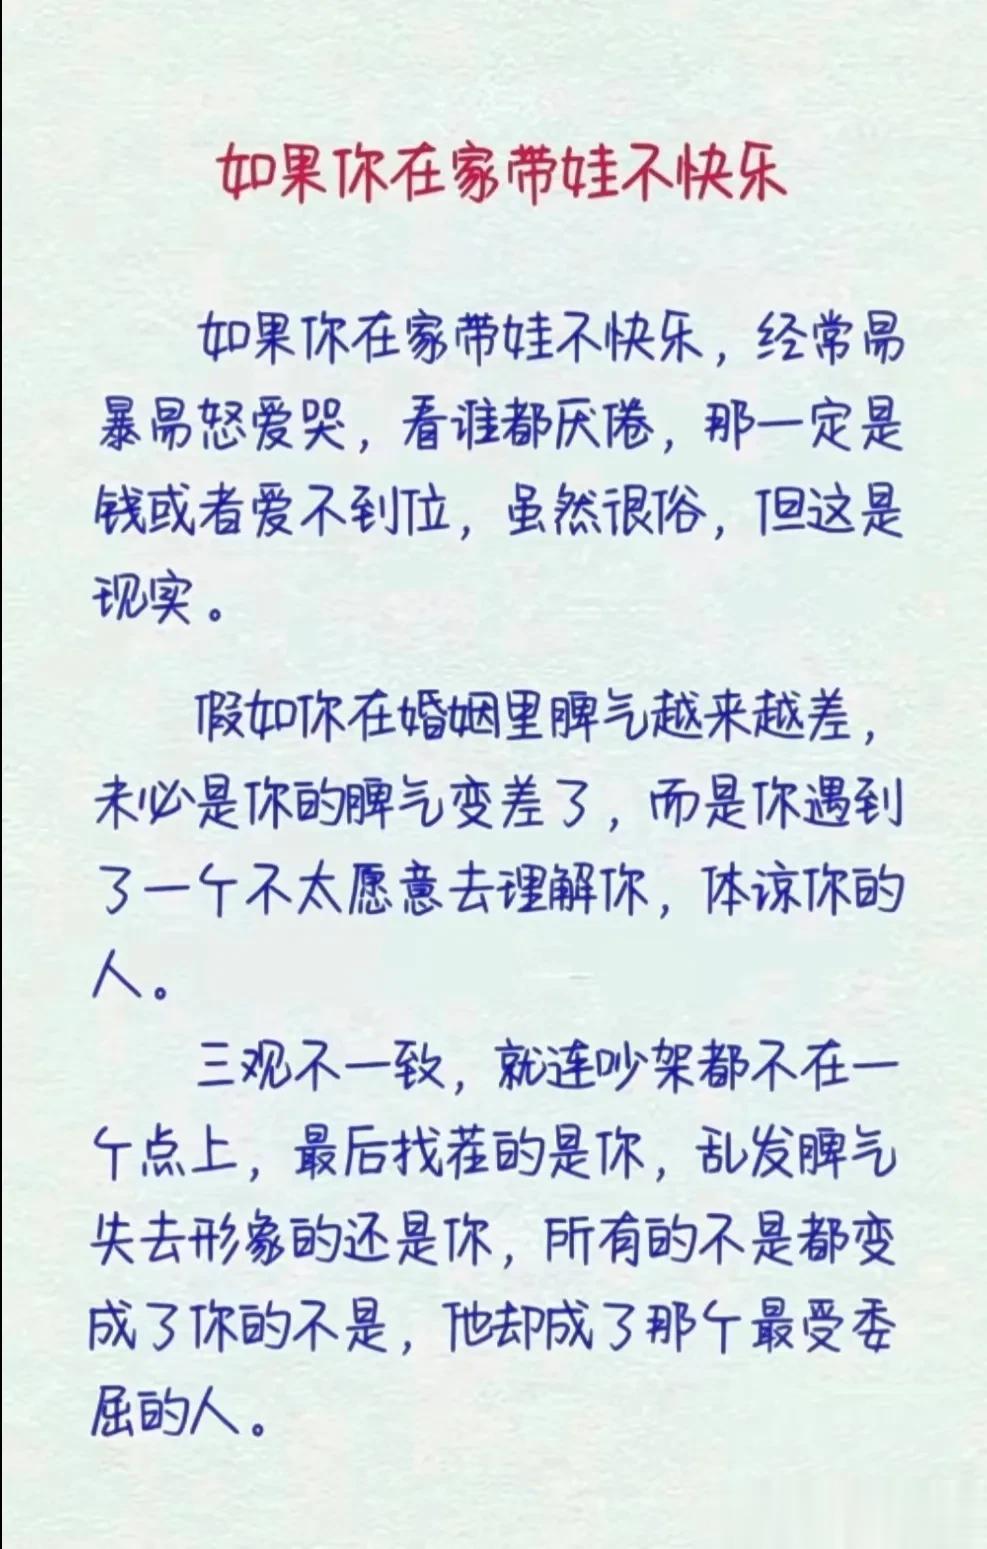 如果你在家带娃不快乐
如果你在家带娃不快乐，经常易
暴易怒爱哭，看谁都厌倦，那一定是
钱或者爱不到位，虽然很俗，但这是
现实。
假如你在婚姻里脾气越来越差，
未必是你的脾气变差了，而是你遇到
了一个不太愿意去理解你，体谅你的
人。
三观不一致，就连吵架都不在一
个点上，最后找茬的是你，乱发脾气
失去形象的还是你，所有的不是都变
成了你的不是，他却成了那个最受委
屈的人。